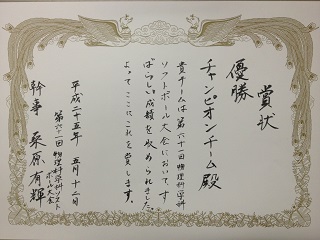 賞状
優勝
チャンピオンチーム殿
貴チームは第六十一回物理科学科
ソフトボール大会においてす
ばらしい成績を収められました
よってここにこれを賞します。
平成二十五年 五月十二日
第六十一回物理科学科ソフト
ボール大会
幹事 栗原有輝